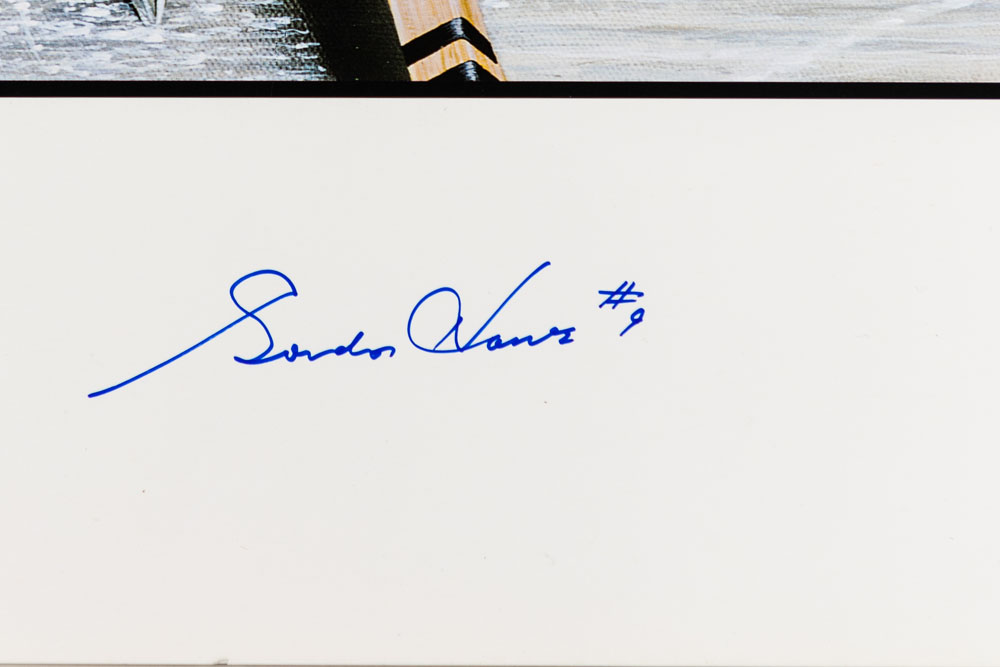 Gordon Howe #9